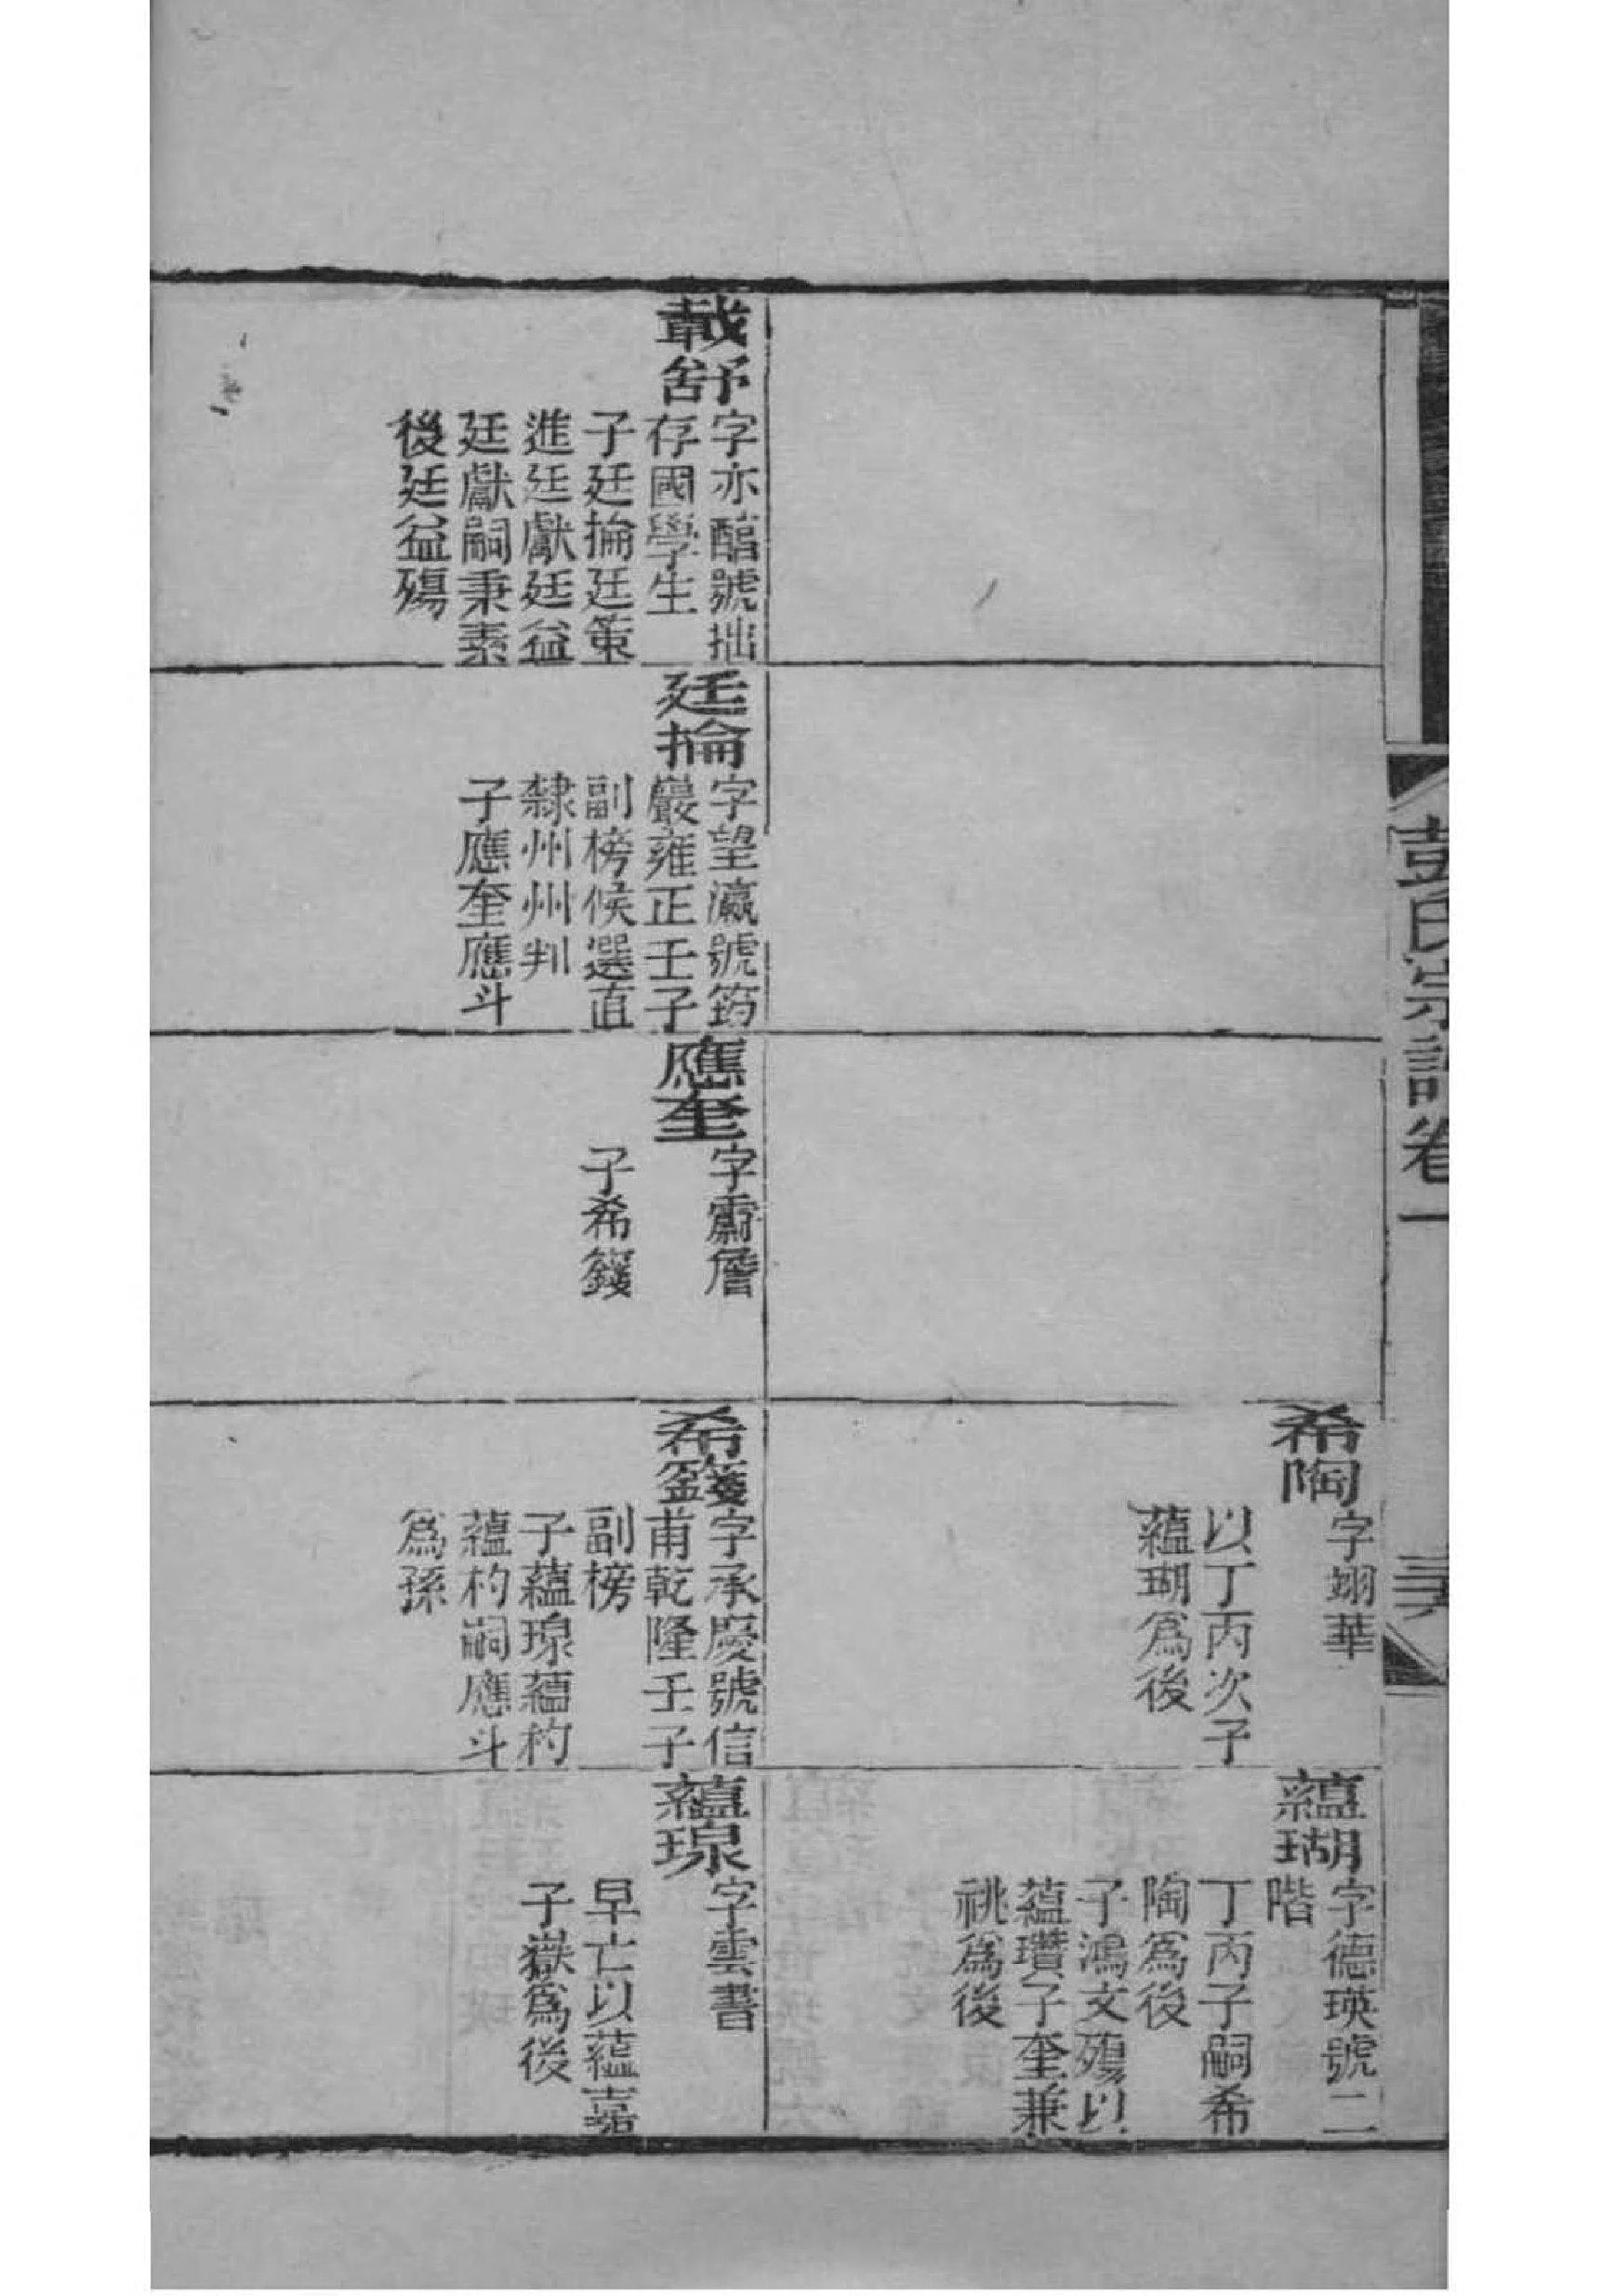 彭氏宗譜卷一
希陶
字翊華
以丁丙次子
蘊瑚爲後
蘊瑚
字德瑛號二
階
丁丙子嗣希
陶爲後
子鴻文殤以
蘊瓚子奎兼
祧爲後
戴舒
字亦醯號拙
存國學生
子廷掄廷策
進廷獻廷益
廷獻嗣秉素
後廷益殤
廷掄
字望瀛號筠
巖雍正壬子
副榜候選直
隸州州判
子應奎應斗
應奎
字霱詹
子希籛
希籛
字承慶號信
甫乾隆壬子
副榜
子蘊琅蘊杓
蘊杓嗣應斗
爲孫
蘊琅
字雲書
早亡以蘊嘉
子嶽爲後